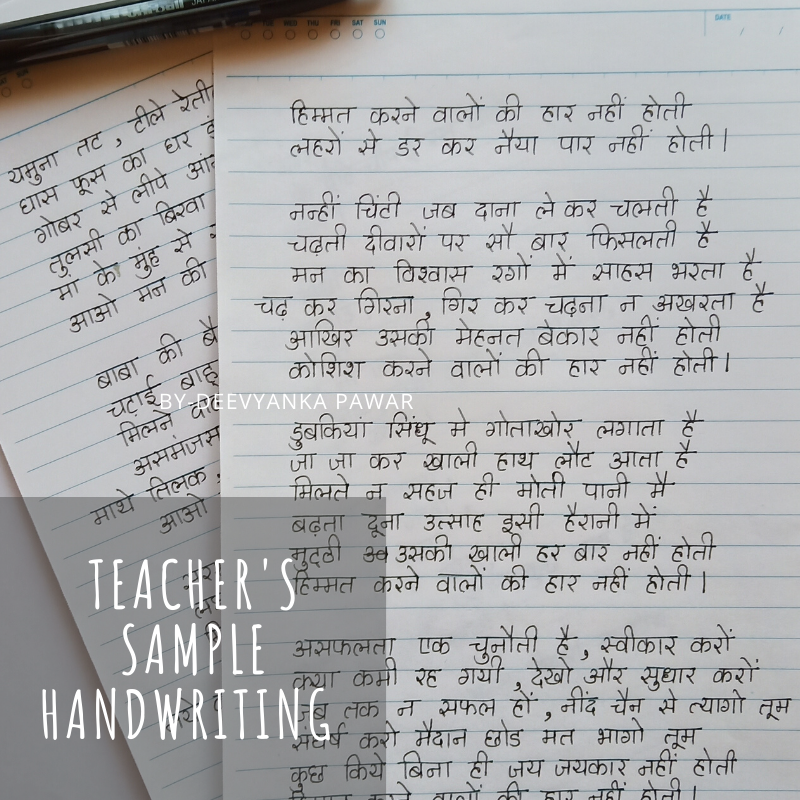 WED THU FRI SAT SUN
DATE
यमुना तट, टीले रेती
घास फूस का घर
गोबर से लीपे
तुलसी का बिरवा
मां के मुंह से
आओ मन की
बाबा की
चटाई
मिलने
असमंजस
माथे तिलक,
आओ
हिम्मत करने वालों की हार नहीं होती
लहरों से डर कर नैया पार नहीं होती।
नन्हीं चिंटी जब दाना ले कर चलती है
चढ़ती दीवारों पर सौ बार फिसलती है
मन का विश्वास रगों में साहस भरता है
चढ़ कर गिरना, गिर कर चढ़ना न अखरता है
आखिर उसकी मेहनत बेकार नहीं होती
कोशिश करने वालों की हार नहीं होती।
BY-DEEVYANKA PAWAR
डुबकियां सिंधू मे गोताखोर लगाता है
जा जा कर खाली हाथ लौट आता है
मिलते न सहज ही मोती पानी मै
बढ़ता दूना उत्साह इसी हैरानी में
मुट्ठी उसकी खाली हर बार नहीं होती
हिम्मत करने वालों की हार नहीं होती।
असफलता एक चुनौती है, स्वीकार करों
क्या कमी रह गयी, देखो और सुधार करों
जब तक न सफल हों, नींद चैन से त्यागो तूम
संघर्ष करो मैदान छोड मत भागो तूम
कुछ किये बिना ही जय जयकार नहीं होती
करने वालों की हार नहीं होती।
TEACHER'S
SAMPLE
HANDWRITING